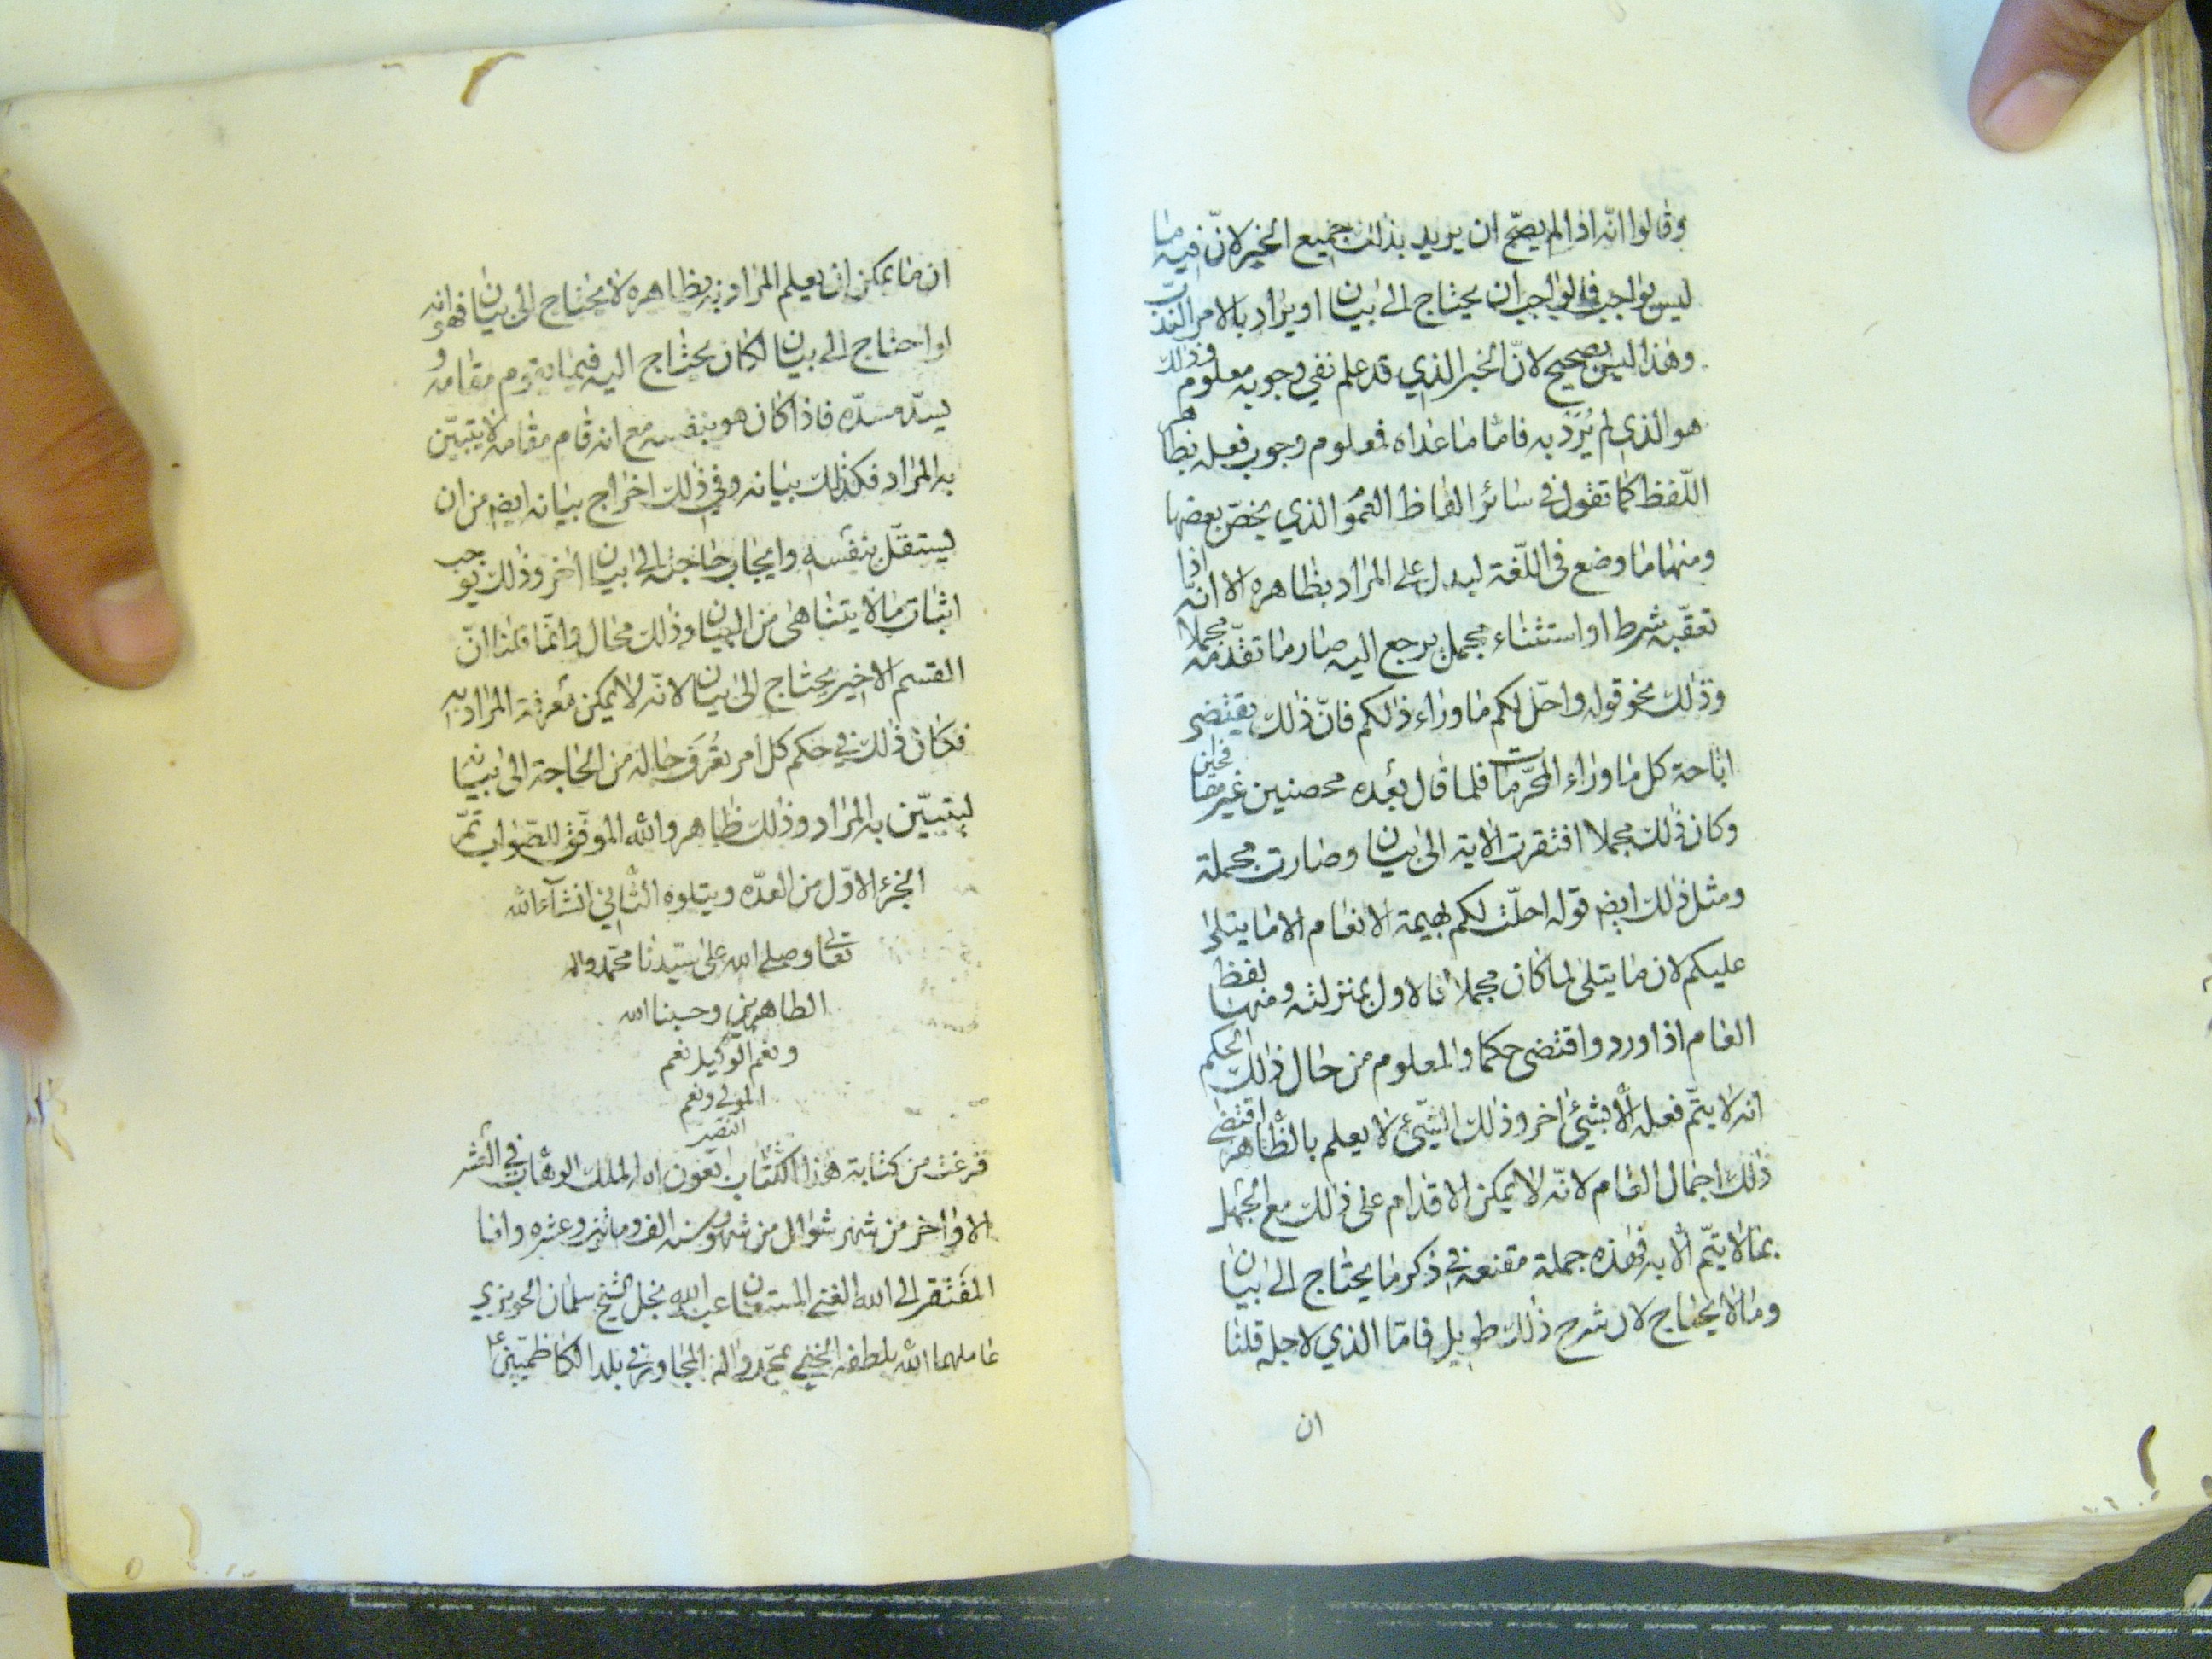 وقالوا انّه اذا لم يصحّ ان يريد بذلك جميع الخير لانّ فيه ما
ليس بواجب فالواجب ان يحتاج الى بيان او يراد بالامر الندب
وهذا ليس بصحيح لانّ الخبر الذي قد علم نفي وجوبه معلوم وذلك
هو الذي لم يُرَد به فامّا ما عداه فمعلوم وجوب فعله بظاهر
اللّفظ كما تقول في سائر الفاظ العموم الذي يخصّ بعضها
ومنها ما وضع في اللّغة ليدل على المراد بظاهره الا انّه اذا
تعقّبه شرط او استثناء مجمل يرجع اليه صار ما تقدّمه مجملا
وذلك نحو قوله واحلّ لكم ما وراء ذلكم فانّ ذلك يقتضي
اباحة كل ما وراء المحرّمات فلما قال بعده محصنين غير مسافحين
وكان ذلك مجملا افتقرت الاية الى بيان وصارت مجملة
ومثل ذلك ايضا قوله احلّت لكم بهيمة الانعام الا ما يتلى
عليكم لان ما يتلى لما كان مجملا فالاول بمنزلته ومنها لفظ
العام اذا ورد واقتضى حكما والمعلوم من حال ذلك الحكم
انه لا يتمّ فعله الا بشيئ اخر وذلك الشيئ لا يعلم بالظّاهر اقتضى
ذلك اجمال العام لانّه لا يمكن الاقدام على ذلك مع الجهل
بما لا يتمّ الا به فهذه جملة مقنعة في ذكر ما يحتاج الى بيان
وما لا يحتاج لان شرح ذلك طويل فامّا الذي لاجله قلنا
ان
ان ما يمكن ان يعلم المراد به بظاهره لا يحتاج الى بيان فهو انه
لو احتاج الى بيان لكان يحتاج اليه فيما يقوم مقامه و
يسدّ مسدّه فاذا كان هو بنفسه مع انه قام مقامه لا يتبيّن
به المراد فكذلك بيانه وفي ذلك اخراج بيانه ايضا من ان
يستقلّ بنفسه وايجاب حاجته الى بيان اخر وذلك يوجب
اثبات ما لا يتناهى من البيان وذلك محال وانّما قلنا انّ
القسم الاخير يحتاج الى بيان لانّه لا يمكن معرفة المراد به
فكان ذلك في حكم كل امر تعرف حاله من الحاجة الى بيان
ليتبيّن به المراد وذلك ظاهر والله الموفّق للصّواب تمّ
الجزء الاوّل من العدّه ويتلوه الثّاني انشآء الله
تعالى وصلى الله على سيّدنا محمّد واله
الطاهرين وحسبنا الله
ونعم الوكيل نعم
المولى ونعم
النصير
فرغت من كتابة هذا الكتاب بعون الله الملك الوهّاب في العشر
الاواخر من شهر شوال من شهور سنه الف وماتين وعشره وانا
المفتقر الى الله الغني المستعان عبد الله نجل الشيخ سلمان الحويزي
عاملهما الله بلطفه الخفي بمحمّد واله المجاور في بلد الكاظميّين ع